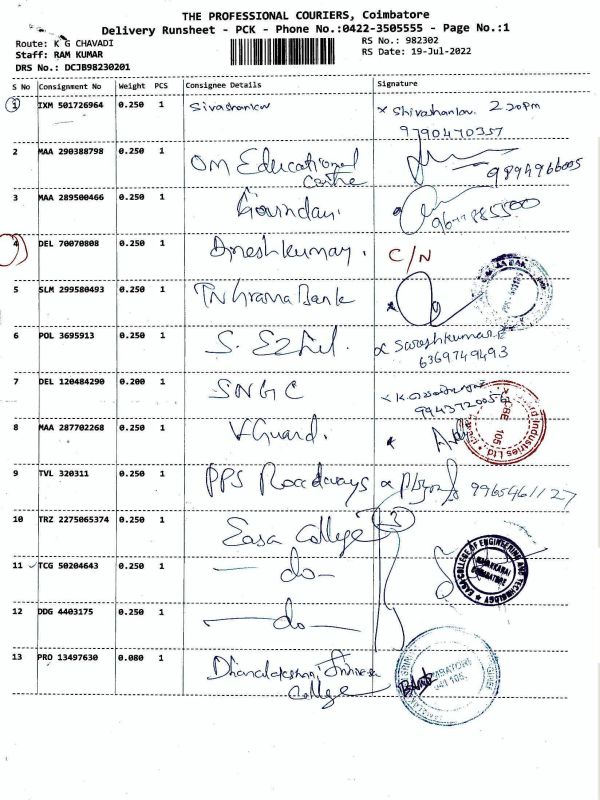 THE PROFESSIONAL COURIERS, Coimbatore
Delivery Runsheet - PCK - Phone No.:0422-3505555 - Page No.:1
Route: K G CHAVADI
RS No.: 982302
Staff: RAM KUMAR
RS Date: 19-Jul-2022
DRS No.: DCJB98230201
S No Consignment No Weight PCS Consignee Details Signature
1 IXM 501726964 0.250 1 Sivashankar x Shivashankar. 2.20pm
9790470357
2 MAA 290388798 0.250 1 OM Educational Centre 9894966005
3 MAA 289500466 0.250 1 Govindaraj.
4 DEL 70070808 0.250 1 Dineshkumar. C/N
5 SLM 299580493 0.250 1 TN Grama Bank
6 POL 3695913 0.250 1 S. Ezhil. Sureshkumar
6369749493
7 DEL 120484290 0.200 1 SNGC
8 MAA 287702268 0.250 1 V Guard.
Industries Ltd
CBE 105
9 TVL 320311 0.250 1 PPS Roadways 9965461127
10 TRZ 2275065374 0.250 1 Easa College 3
EASA COLLEGE OF ENGINEERING AND TECHNOLOGY
NAVAKKARAI
COIMBATORE
11 TCG 50204643 0.250 1 — do —
12 DDG 4403175 0.250 1 — do —
13 PRO 13497630 0.080 1 Dhanalakshmi Srinivasa College
COIMBATORE
641 105.